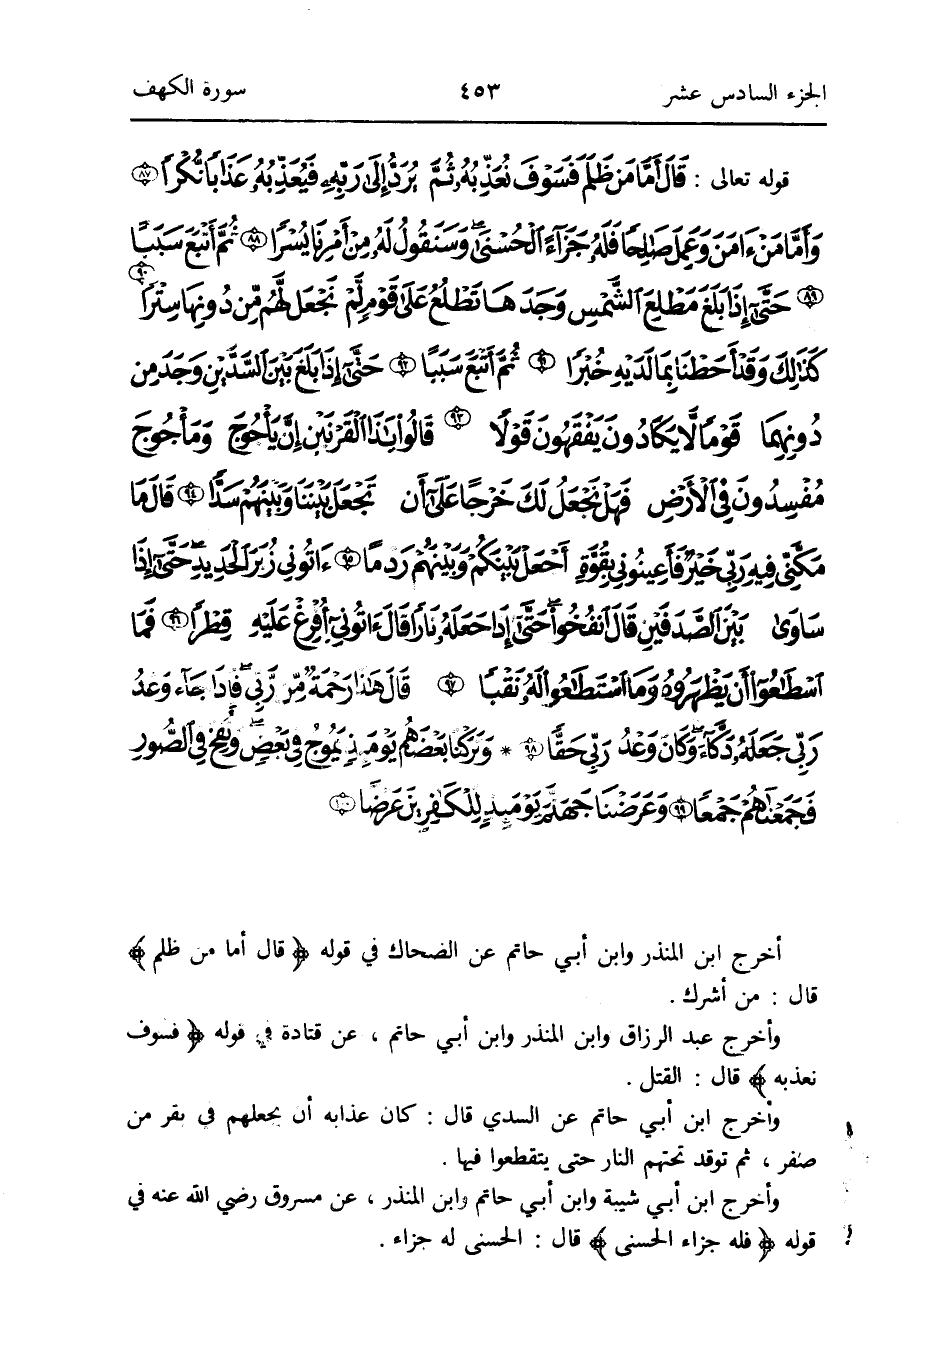 الجزء السادس عشر ٤٥٣ سورة الكهف
قوله تعالى : قَالَ أَمَّا مَن ظَلَمَ فَسَوْفَ نُعَذِّبُهُۥ ثُمَّ يُرَدُّ إِلَىٰ رَبِّهِۦ فَيُعَذِّبُهُۥ عَذَابًا نُّكْرًا ٨٧
وَأَمَّا مَنْ ءَامَنَ وَعَمِلَ صَٰلِحًا فَلَهُۥ جَزَآءً ٱلْحُسْنَىٰ ۖ وَسَنَقُولُ لَهُۥ مِنْ أَمْرِنَا يُسْرًا ٨٨ ثُمَّ أَتْبَعَ سَبَبًا
٨٩ حَتَّىٰٓ إِذَا بَلَغَ مَطْلِعَ ٱلشَّمْسِ وَجَدَهَا تَطْلُعُ عَلَىٰ قَوْمٍ لَّمْ نَجْعَل لَّهُم مِّن دُونِهَا سِتْرًا ٩٠
كَذَٰلِكَ وَقَدْ أَحَطْنَا بِمَا لَدَيْهِ خُبْرًا ٩١ ثُمَّ أَتْبَعَ سَبَبًا ٩٢ حَتَّىٰٓ إِذَا بَلَغَ بَيْنَ ٱلسَّدَّيْنِ وَجَدَ مِن
دُونِهِمَا قَوْمًا لَّا يَكَادُونَ يَفْقَهُونَ قَوْلًا ٩٣ قَالُوا۟ يَٰذَا ٱلْقَرْنَيْنِ إِنَّ يَأْجُوجَ وَمَأْجُوجَ
مُفْسِدُونَ فِى ٱلْأَرْضِ فَهَلْ نَجْعَلُ لَكَ خَرْجًا عَلَىٰٓ أَن تَجْعَلَ بَيْنَنَا وَبَيْنَهُمْ سَدًّا ٩٤ قَالَ مَا
مَكَّنِّى فِيهِ رَبِّى خَيْرٌ فَأَعِينُونِى بِقُوَّةٍ أَجْعَلْ بَيْنَكُمْ وَبَيْنَهُمْ رَدْمًا ٩٥ ءَاتُونِى زُبَرَ ٱلْحَدِيدِ ۖ حَتَّىٰٓ إِذَا
سَاوَىٰ بَيْنَ ٱلصَّدَفَيْنِ قَالَ ٱنفُخُوا۟ ۖ حَتَّىٰٓ إِذَا جَعَلَهُۥ نَارًا قَالَ ءَاتُونِىٓ أُفْرِغْ عَلَيْهِ قِطْرًا ٩٦ فَمَا
ٱسْطَٰعُوٓا۟ أَن يَظْهَرُوهُ وَمَا ٱسْتَطَٰعُوا۟ لَهُۥ نَقْبًا ٩٧ قَالَ هَٰذَا رَحْمَةٌ مِّن رَّبِّى ۖ فَإِذَا جَآءَ وَعْدُ
رَبِّى جَعَلَهُۥ دَكَّآءَ ۖ وَكَانَ وَعْدُ رَبِّى حَقًّا ٩٨ * وَتَرَكْنَا بَعْضَهُمْ يَوْمَئِذٍ يَمُوجُ فِى بَعْضٍ ۖ وَنُفِخَ فِى ٱلصُّورِ
فَجَمَعْنَٰهُمْ جَمْعًا ٩٩ وَعَرَضْنَا جَهَنَّمَ يَوْمَئِذٍ لِّلْكَٰفِرِينَ عَرْضًا ١٠٠
أخرج ابن المنذر وابن أبي حاتم عن الضحاك في قوله ﴿ قال أما من ظلم ﴾
قال : من أشرك .
وأخرج عبد الرزاق وابن المنذر وابن أبي حاتم ، عن قتادة في قوله ﴿ فسوف
نعذبه ﴾ قال : القتل .
وأخرج ابن أبي حاتم عن السدي قال : كان عذابه أن يجعلهم في بقر من
صفر ، ثم توقد تحتهم النار حتى يتقطعوا فيها .
وأخرج ابن أبي شيبة وابن أبي حاتم وابن المنذر ، عن مسروق رضي الله عنه في
قوله ﴿ فله جزاء الحسنى ﴾ قال : الحسنى له جزاء .